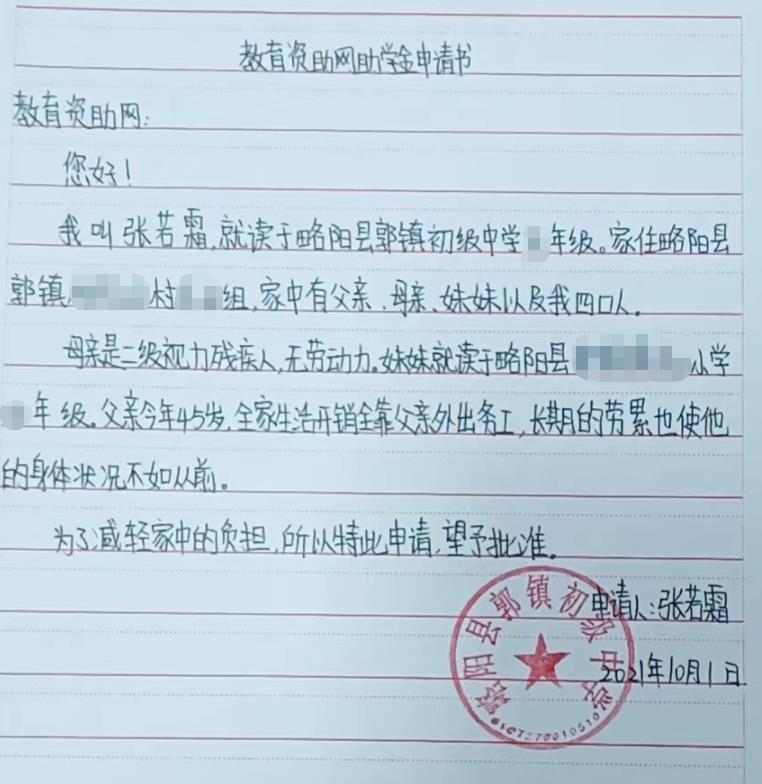 教育资助网助学金申请书
教育资助网:
您好!
我叫张若霜,就读于略阳县郭镇初级中学年级。家住略阳县
郭镇村组,家中有父亲、母亲、妹妹以及我四口人。
母亲是二级视力残疾人,无劳动力。妹妹就读于略阳县小学
年级。父亲今年45岁,全家生活开销全靠父亲外出务工,长期的劳累也使他
的身体状况不如从前。
为了减轻家中的负担,所以特此申请,望予批准。
申请人:张若霜
2021年10月1日
略阳县郭镇初级中学